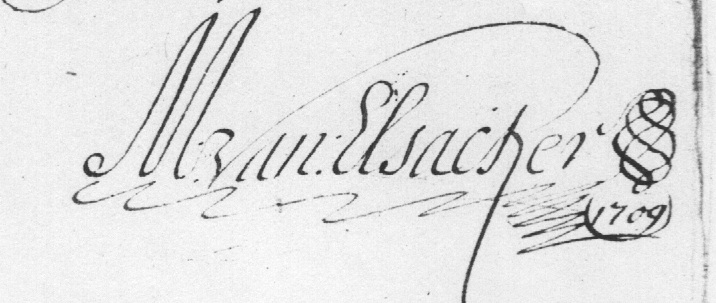 M: van: Elsacker
1709